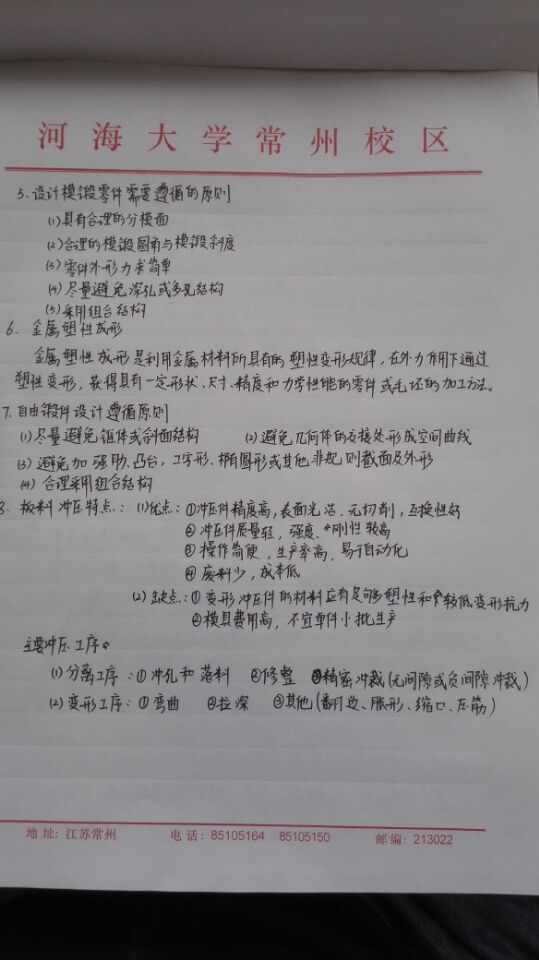 河海大学常州校区
5、设计模锻零件需要遵循的原则
(1)具有合理的分模面
(2)合理的模锻圆角与模锻斜度
(3)零件外形力求简单
(4)尽量避免深孔或多孔结构
(5)采用组合结构
6、金属塑性成形
金属塑性成形是利用金属材料所具有的塑性变形规律,在外力作用下通过
塑性变形,获得具有一定形状、尺寸、精度和力学性能的零件或毛坯的加工方法。
7、自由锻件设计遵循原则
(1)尽量避免锥体或斜面结构 (2)避免几何体的交接处形成空间曲线
(3)避免加强肋、凸台,工字形、椭圆形或其他非规则截面及外形
(4)合理采用组合结构
8、板料冲压特点:(1)优点:①冲压件精度高,表面光洁、无切削,互换性好
②冲压件质量轻,强度、刚性较高
③操作简便,生产率高,易于自动化
④废料少,成本低
(2)缺点:①变形冲压件的材料应有足够塑性和较低变形抗力
②模具费用高,不宜单件小批生产
主要冲压工序。
(1)分离工序:①冲孔和落料 ②修整 ③精密冲裁(无间隙或负间隙冲裁)
(2)变形工序:①弯曲 ②拉深 ③其他(翻边、胀形、缩口、压筋)
地址:江苏常州 电话:85105164 85105150 邮编:213022